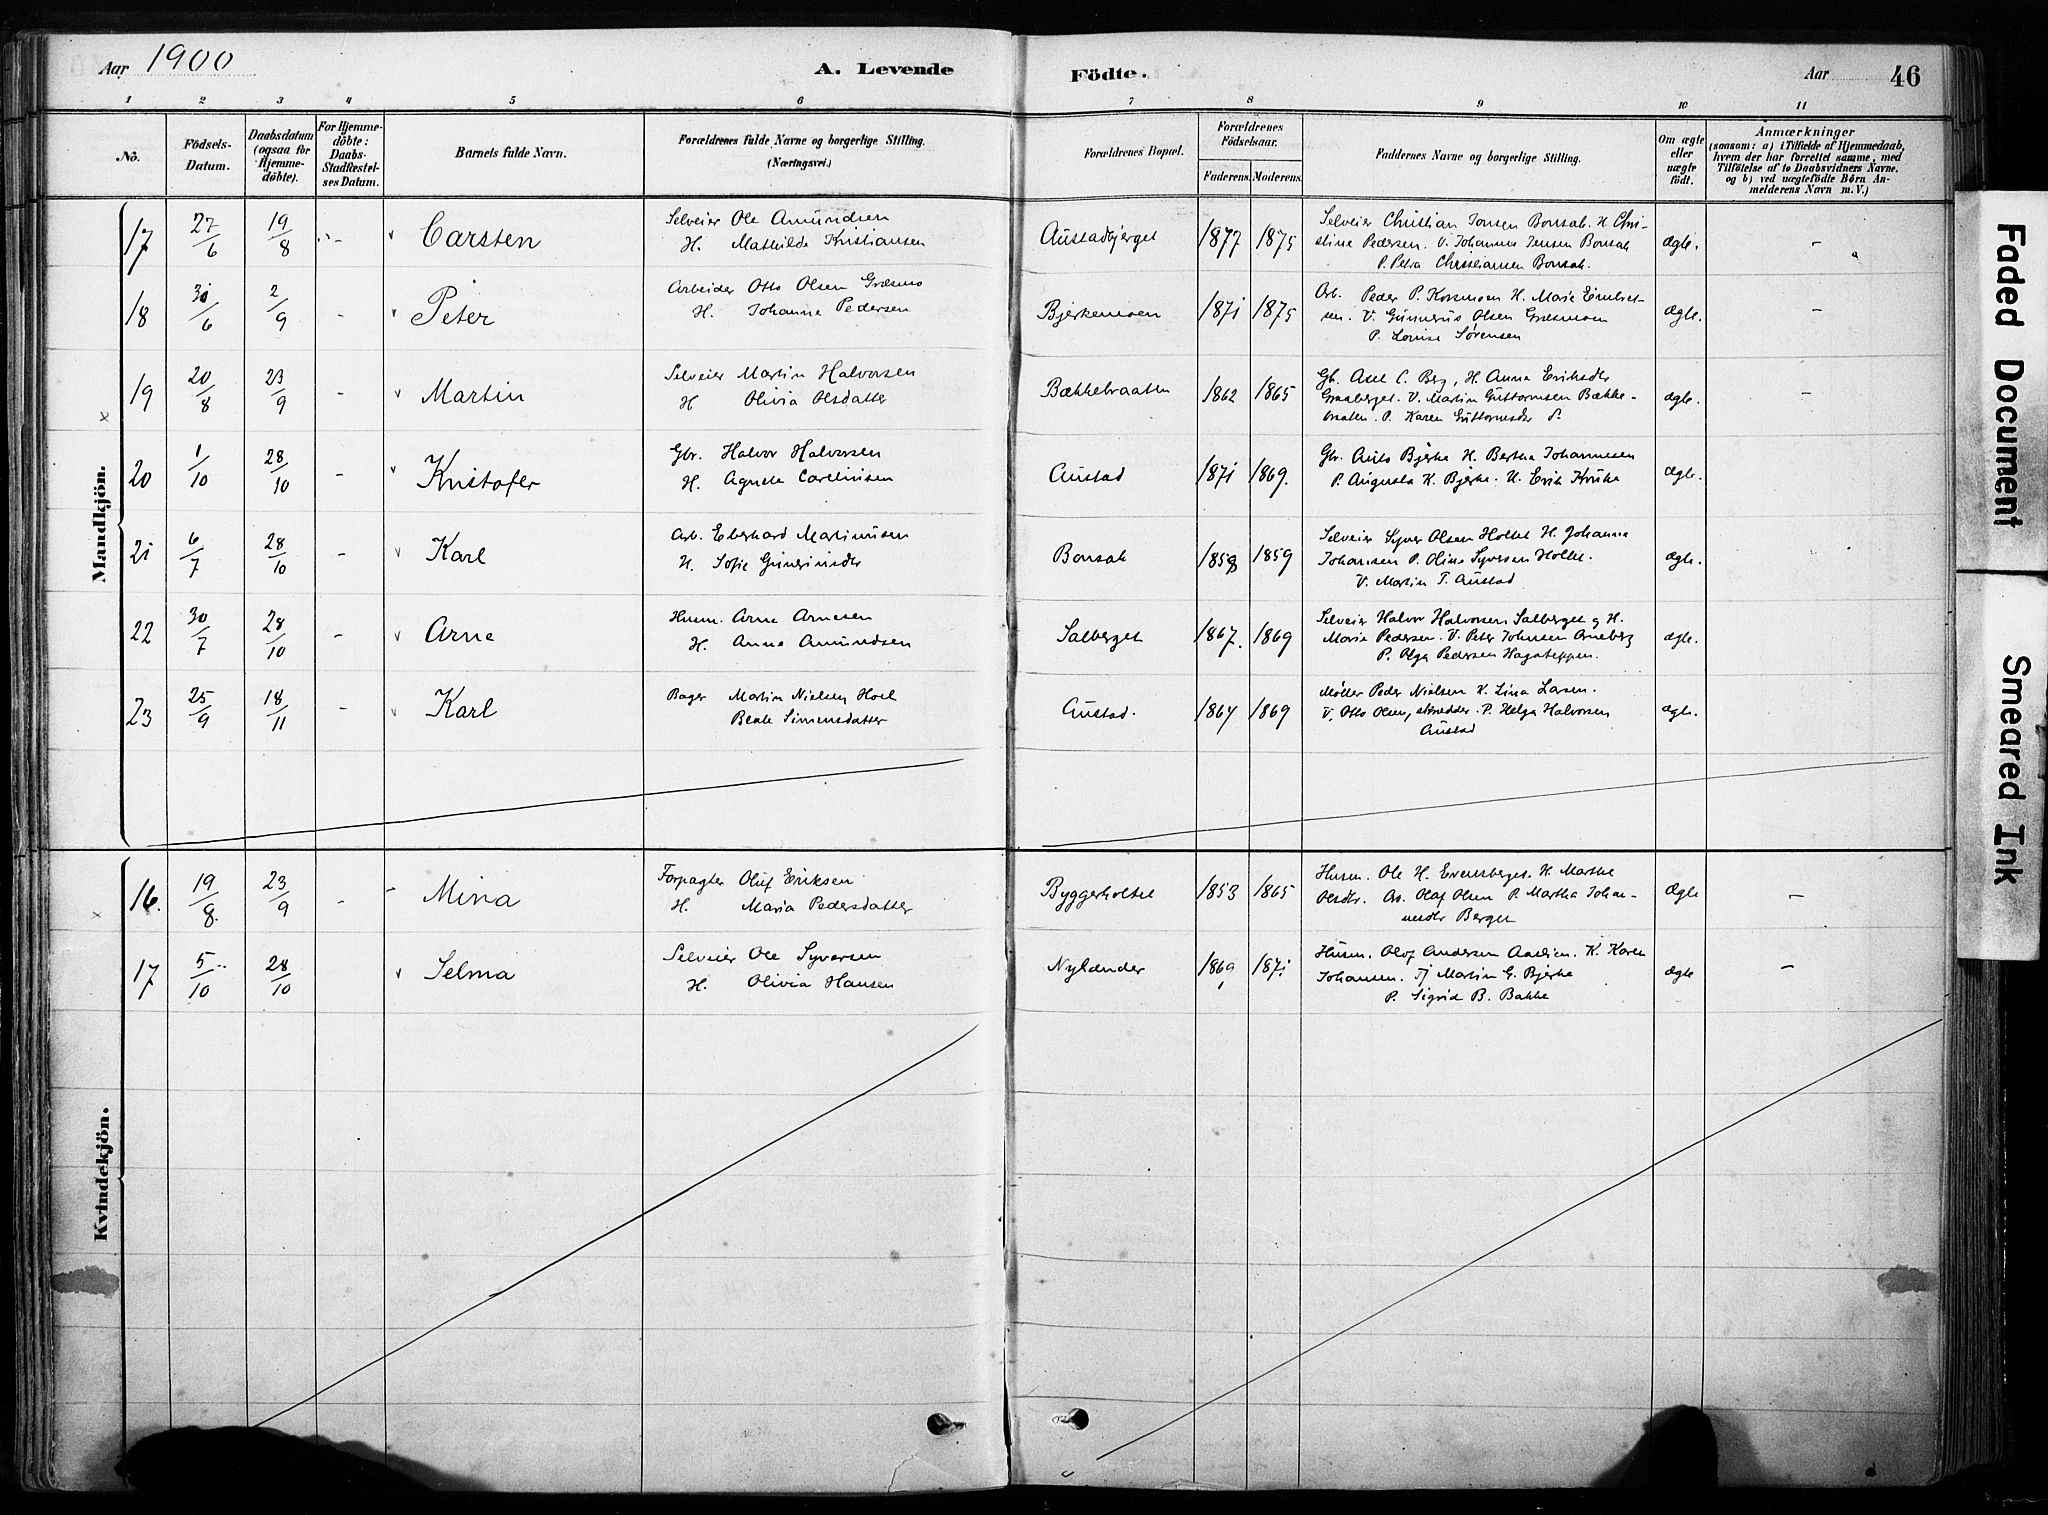 Aar 1900
A. Levende Födte.
Aar 46
1 2 3 4 5 6 7 8 9 10 11
No.
Födsels-Datum.
Daabsdatum (ogsaa for Hjemme-döbte).
For Hjemme-döbte: Daabs-Stadfæstel-ses Datum.
Barnets fulde Navn.
Forældrenes fulde Navne og borgerlige Stilling.
(Næringsvei.)
Forældrenes Bopæl.
Forældrenes Födselsaar.
Faderens. Moderens.
Faddernes Navne og borgerlige Stilling.
Om ægte eller uægte födt.
Anmærkninger
(saasom: a) i Tilfælde af Hjemmedaab, hvem der har forrettet samme, med Tilföielse af to Daabsvidners Navne. og b) ved uægtefödte Börn Anmelderens Navn m.V.)
Mandkjön.
17 27/6 19/8 Carsten
Selveier Ole Amundsen
H. Mathilde Kristiansen
Austadbjerget 1877 1875
Selveier Christian Jonsen Bonsak. H. Chri-
stine Pedersen. V. Johannes Jensen Bonsak
P. Petra Christiansen Bonsak.
ægte. -
18 30/6 2/9 - Peter
Arbeider Otto Olsen Græsmo
H. Johanne Pedersen
Bjerkemoen 1871 1875
Arb. Peder P. Korsmoen H. Marie
V. Gunnerus Olsen Græsmoen
P. Louise Sørensen
ægte. -
19 20/8 23/9 - Martin
Selveier Martin Halvorsen
H Olivia Olsdatter
Bækkebraaten 1862 1865
Gb. Axel C. Berg, H. Anna Eriksdtr
Graaberget. V. Martin Guttormsen Bække-
braaten. P. Karen Guttormsdtr
ægte. -
20 1/10 28/10 - Kristofer
Gbr. Halvor Halvorsen
H. Agnete
Austad 1871 1869.
Gbr. Bjerke H. Bertha Johannesen
P. Augusta K. Bjerke. U. Erik Kruke
ægte.
21 6/7 28/10 - Karl
Arb. Eberhard Martinusen
H. Sofie
Bonsak 1858 1859
Selveier Syver Olsen Holtet H. Johanne
Johansen P. Oline Syversen Holtet.
V. Martin T. Austad
ægte.
22 30/7 28/10 - Arne
Husm. Arne Arnesen
H. Anne Amundsen
Salberget 1867. 1869
Selveier Halvor Halvorsen Salberget og H.
Marie Pedersen. V. Peter Johnsen Arneberg
P. Olga Pedersen Hagateppen.
ægte.
23 25/9 18/11 - Karl
Bager Martin Nielsen Hoel
Beate Simensdatter
Austad. 1867 1869
Møller Peder Nielsen H. Lina Larsen.
V. Otto Olsen, skredder. P. Helga Halvorsen
Austad
ægte.
Kvindekjön.
16. 19/8. 23/9 - Mina
Forpagter Oluf Eriksen
H. Maria Pedersdatter
Byggerholtet 1853 1865
Husm. Ole H. Evensberget. H. Marthe
Olsdtr. Olaf Olsen P. Martha Johan-
nesdtr Berget
Ægte -
17 5/10 28/10 Selma
Selveier Ole Syversen
H. Olivia Hansen
Nylænder 1869 1871
Husm. Olof Andersen H. Karen
Johansen. Tj Martin G. Bjerke
P. Sigrid B. Bakke
ægte -
Faded Document
Smeared Ink